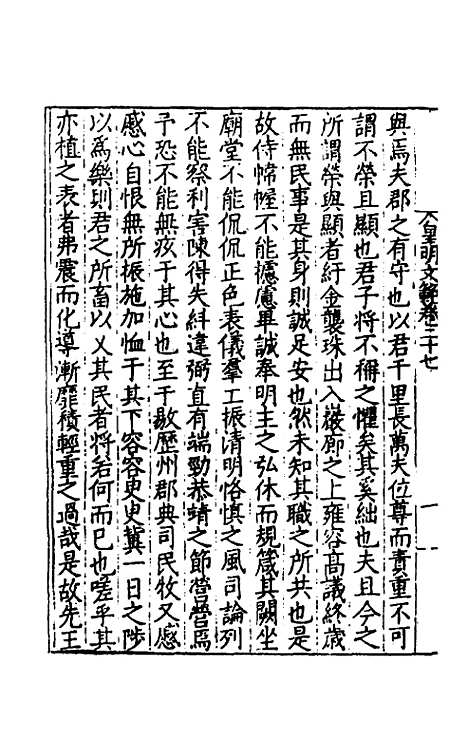 皇明文範卷二十七
與焉夫郡之有守也以君千里長萬夫位尊而責重不可
謂不榮且顯也君子將不稱之懼矣其奚絀也夫且今之
所謂榮與顯者紆金襲珠出入巖廊之上雍容高議終歲
而無民事是其身則誠足安也然未知其職之所共也是
故侍帷幄不能攄慮畢誠奉明主之弘休而規箴其闕坐
廟堂不能侃侃正色表儀羣工振清明恪慎之風司論列
不能察利害陳得失糾違弼直有端勁恭蜻之節營營焉
予恐不能無疚于其心也至于敭歷州郡典司民牧又感
感心自恨無所振施加恤于其下容容史史冀一日之陟
以為樂圳君之所畜以乂其民者將若何而已也嗟乎其
亦植之表者弗震而化導漸靡積輕重之過哉是故先王